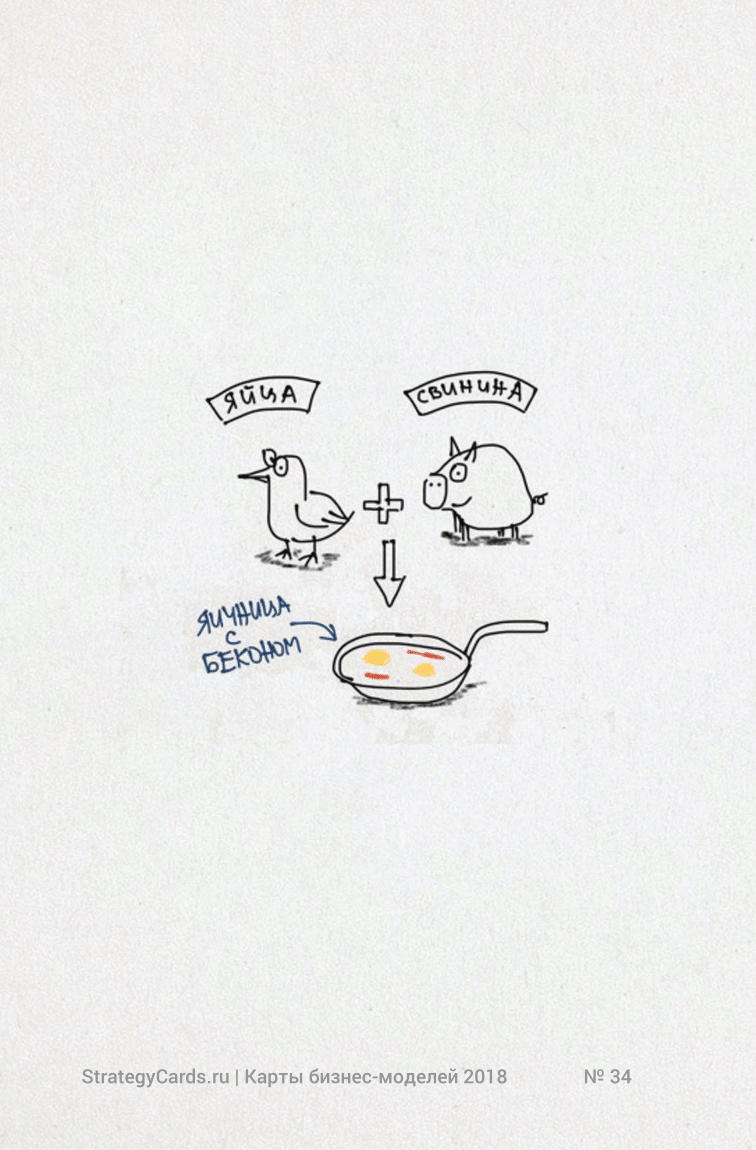 ЯЙЦА
СВИНИНА
ЯИЧНИЦА
С
БЕКОНОМ
StrategyCards.ru | Карты бизнес-моделей 2018 № 34